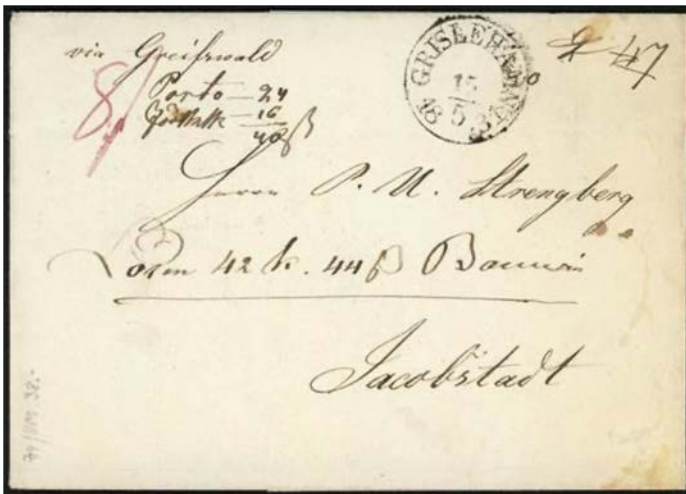 via Greifswald
Porto — 24
16
40 ß
8/
GRISLEHAMN
15
5
18
47
Herrn P. U. Strengberg
Lösen 42 k. 44 ß Banco
Jacobstadt